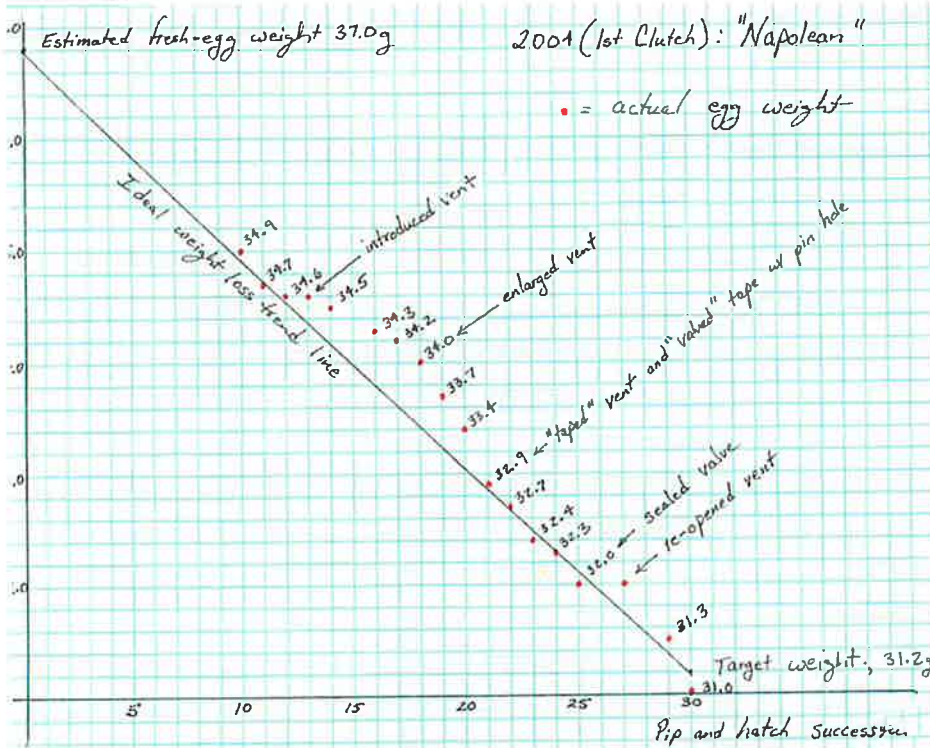 .0
Estimated fresh-egg weight 37.0g
2004 (1st Clutch): "Napolean"
• = actual egg weight
.0
Ideal weight loss trend line
5.0
34.9
34.7
34.6
introduced vent
34.5
34.3
34.2
34.0
enlarged vent
.0
33.7
33.4
.0
32.9
"taped" vent and "valved" tape w/ pin hole
32.7
32.4
32.3
32.0
sealed valve
re-opened vent
.0
31.3
Target weight, 31.2g
31.0
5
10
15
20
25
30
Pip and hatch succession